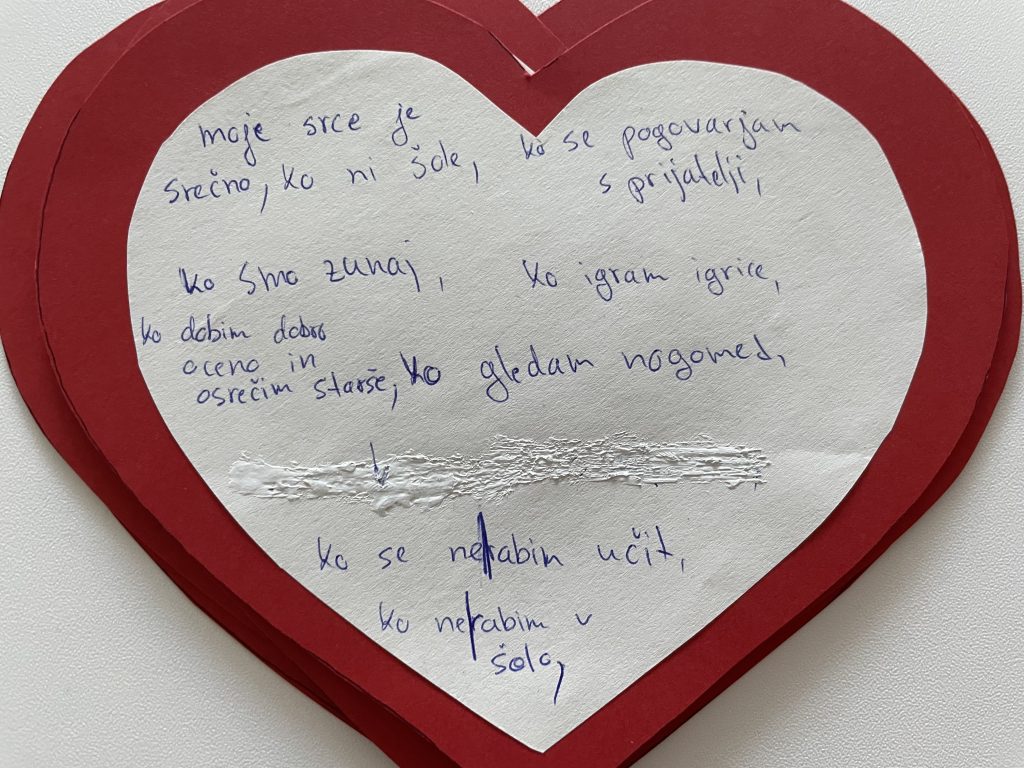 moje srce je
srečno, ko ni šole,
ko se pogovarjam
s prijatelji,
ko smo zunaj,
ko igram igrice,
ko dobim dobro
oceno in
osrečim starše,
ko gledam nogomed,
ko se ne|rabim učit,
ko ne|rabim v
šolo,